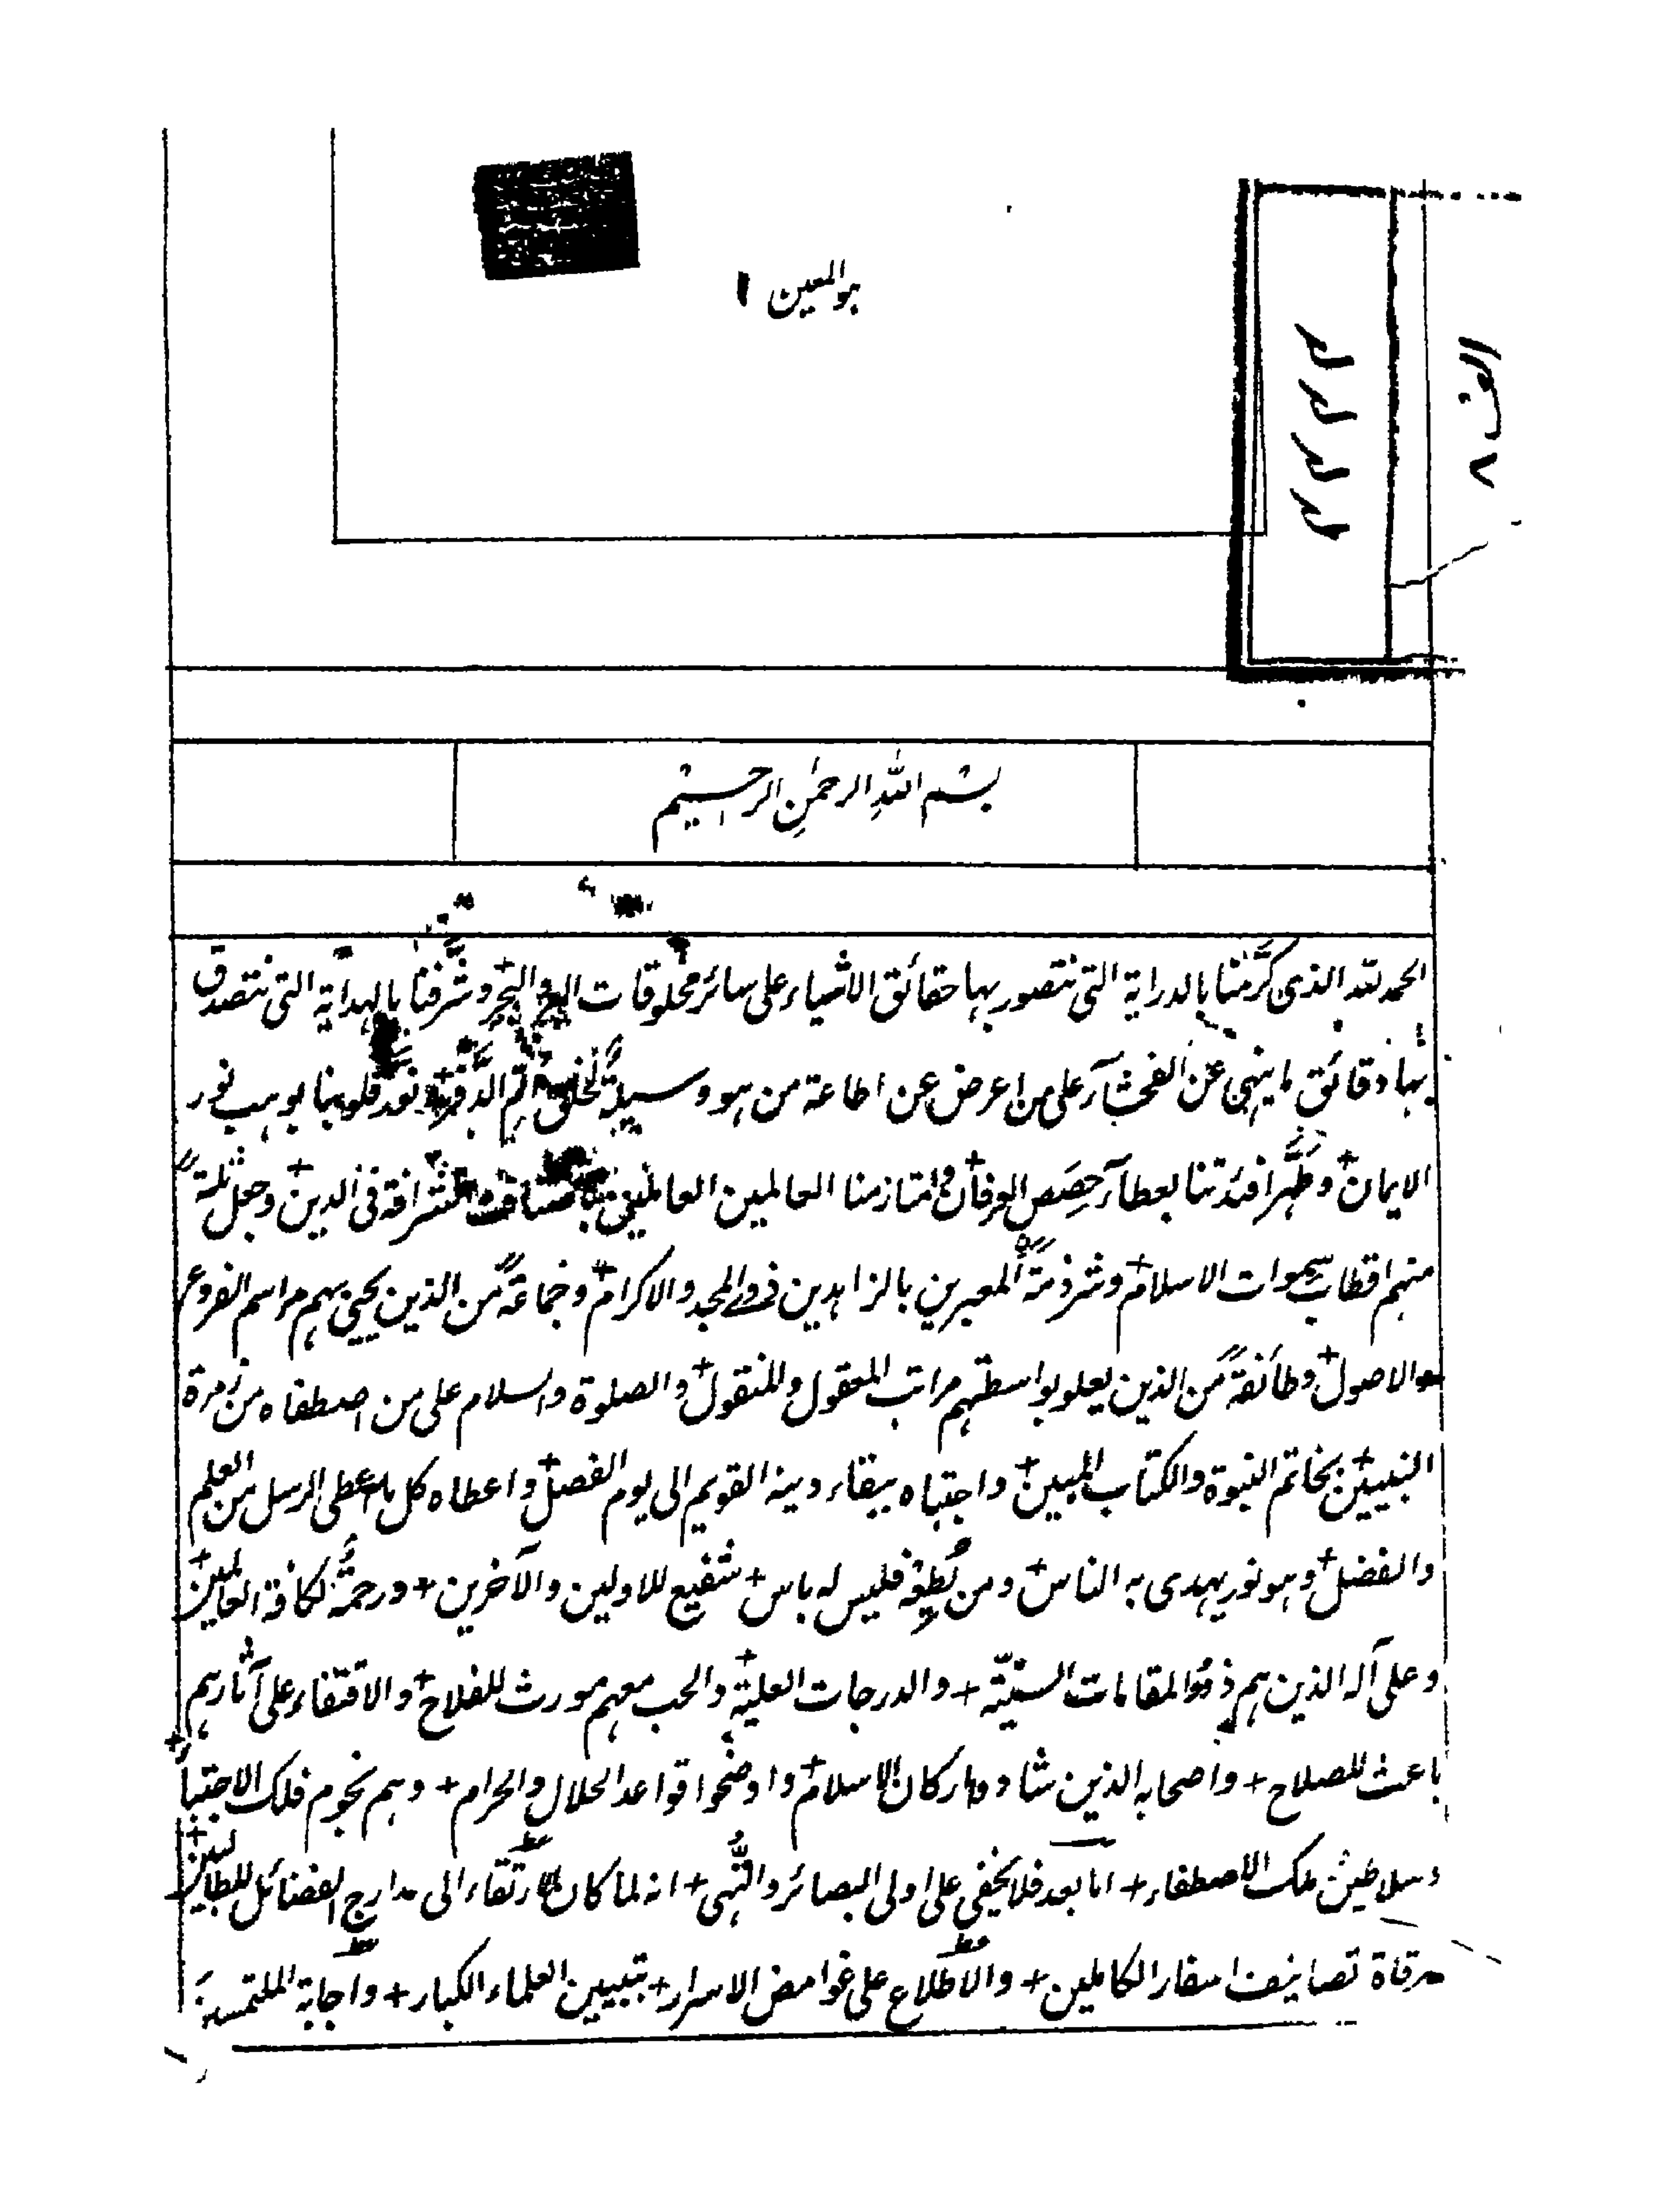 هو المعين ١
الف ٨
بسم الله الرحمن الرحيم
الحمد لله الذى كرّمنا بالدراية التى نتصور بها حقائق الاشياء على سائر مخلوقات البر و البحر و شرّفنا بالهداية التى نتصدق
بها دقائق ما ينهى عن الفحشآء على من اعرض عن اطاعة من هو وسيلة لخلق قلوبنا بوهب نور
الايمان + و طهّر افئدتنا بعطآء حصص العرفان + و امتاز منا العالمين العاملين الشرافة فى الدين + و جعل ثلة
منهم اقطاب سموات الاسلام + و شرذمة المعبرين بالزاهدين ذوى المجد و الاكرام + و جماعة من الذين يحيى بهم مراسم الفروع
والاصول + و طائفة من الذين يعلو بواسطتهم مراتب المعقول و المنقول + و الصلوة و السلام على من اصطفاه من زمرة
النبيين + بخاتم النبوة والكتاب المبين + و اجتباه ببقاء دينه القويم الى يوم الفصل + و اعطاه كل ما اعطى الرسل من العلم
والفضل + و هو نور يهدى به الناس + و من يُطِعْه فليس له باس + شفيع للاولين و الآخرين + و رحمة لكافة العالمين +
و على آله الذين هم ذوو المقامات السنيّة + و الدرجات العلية + و الحب معهم مورث للفلاح + و الاقتفاء على آثارهم
باعث للصلاح + و اصحابه الذين شادوا اركان الاسلام + و اوضحوا قواعد الحلال و الحرام + و هم نجوم فلك الاجتباء +
و سلاطين ملك الاصطفاء + اما بعد فلا يخفى على اولى البصائر و النُّهى + انه لما كان الارتقاء الى مدارج الفضائل للطالبين +
مرقاة تصانيف اسفار الكاملين + و الاطلاع على غوامض الاسرار + بتبيين العلماء الكبار + و اجابة الملتمسة